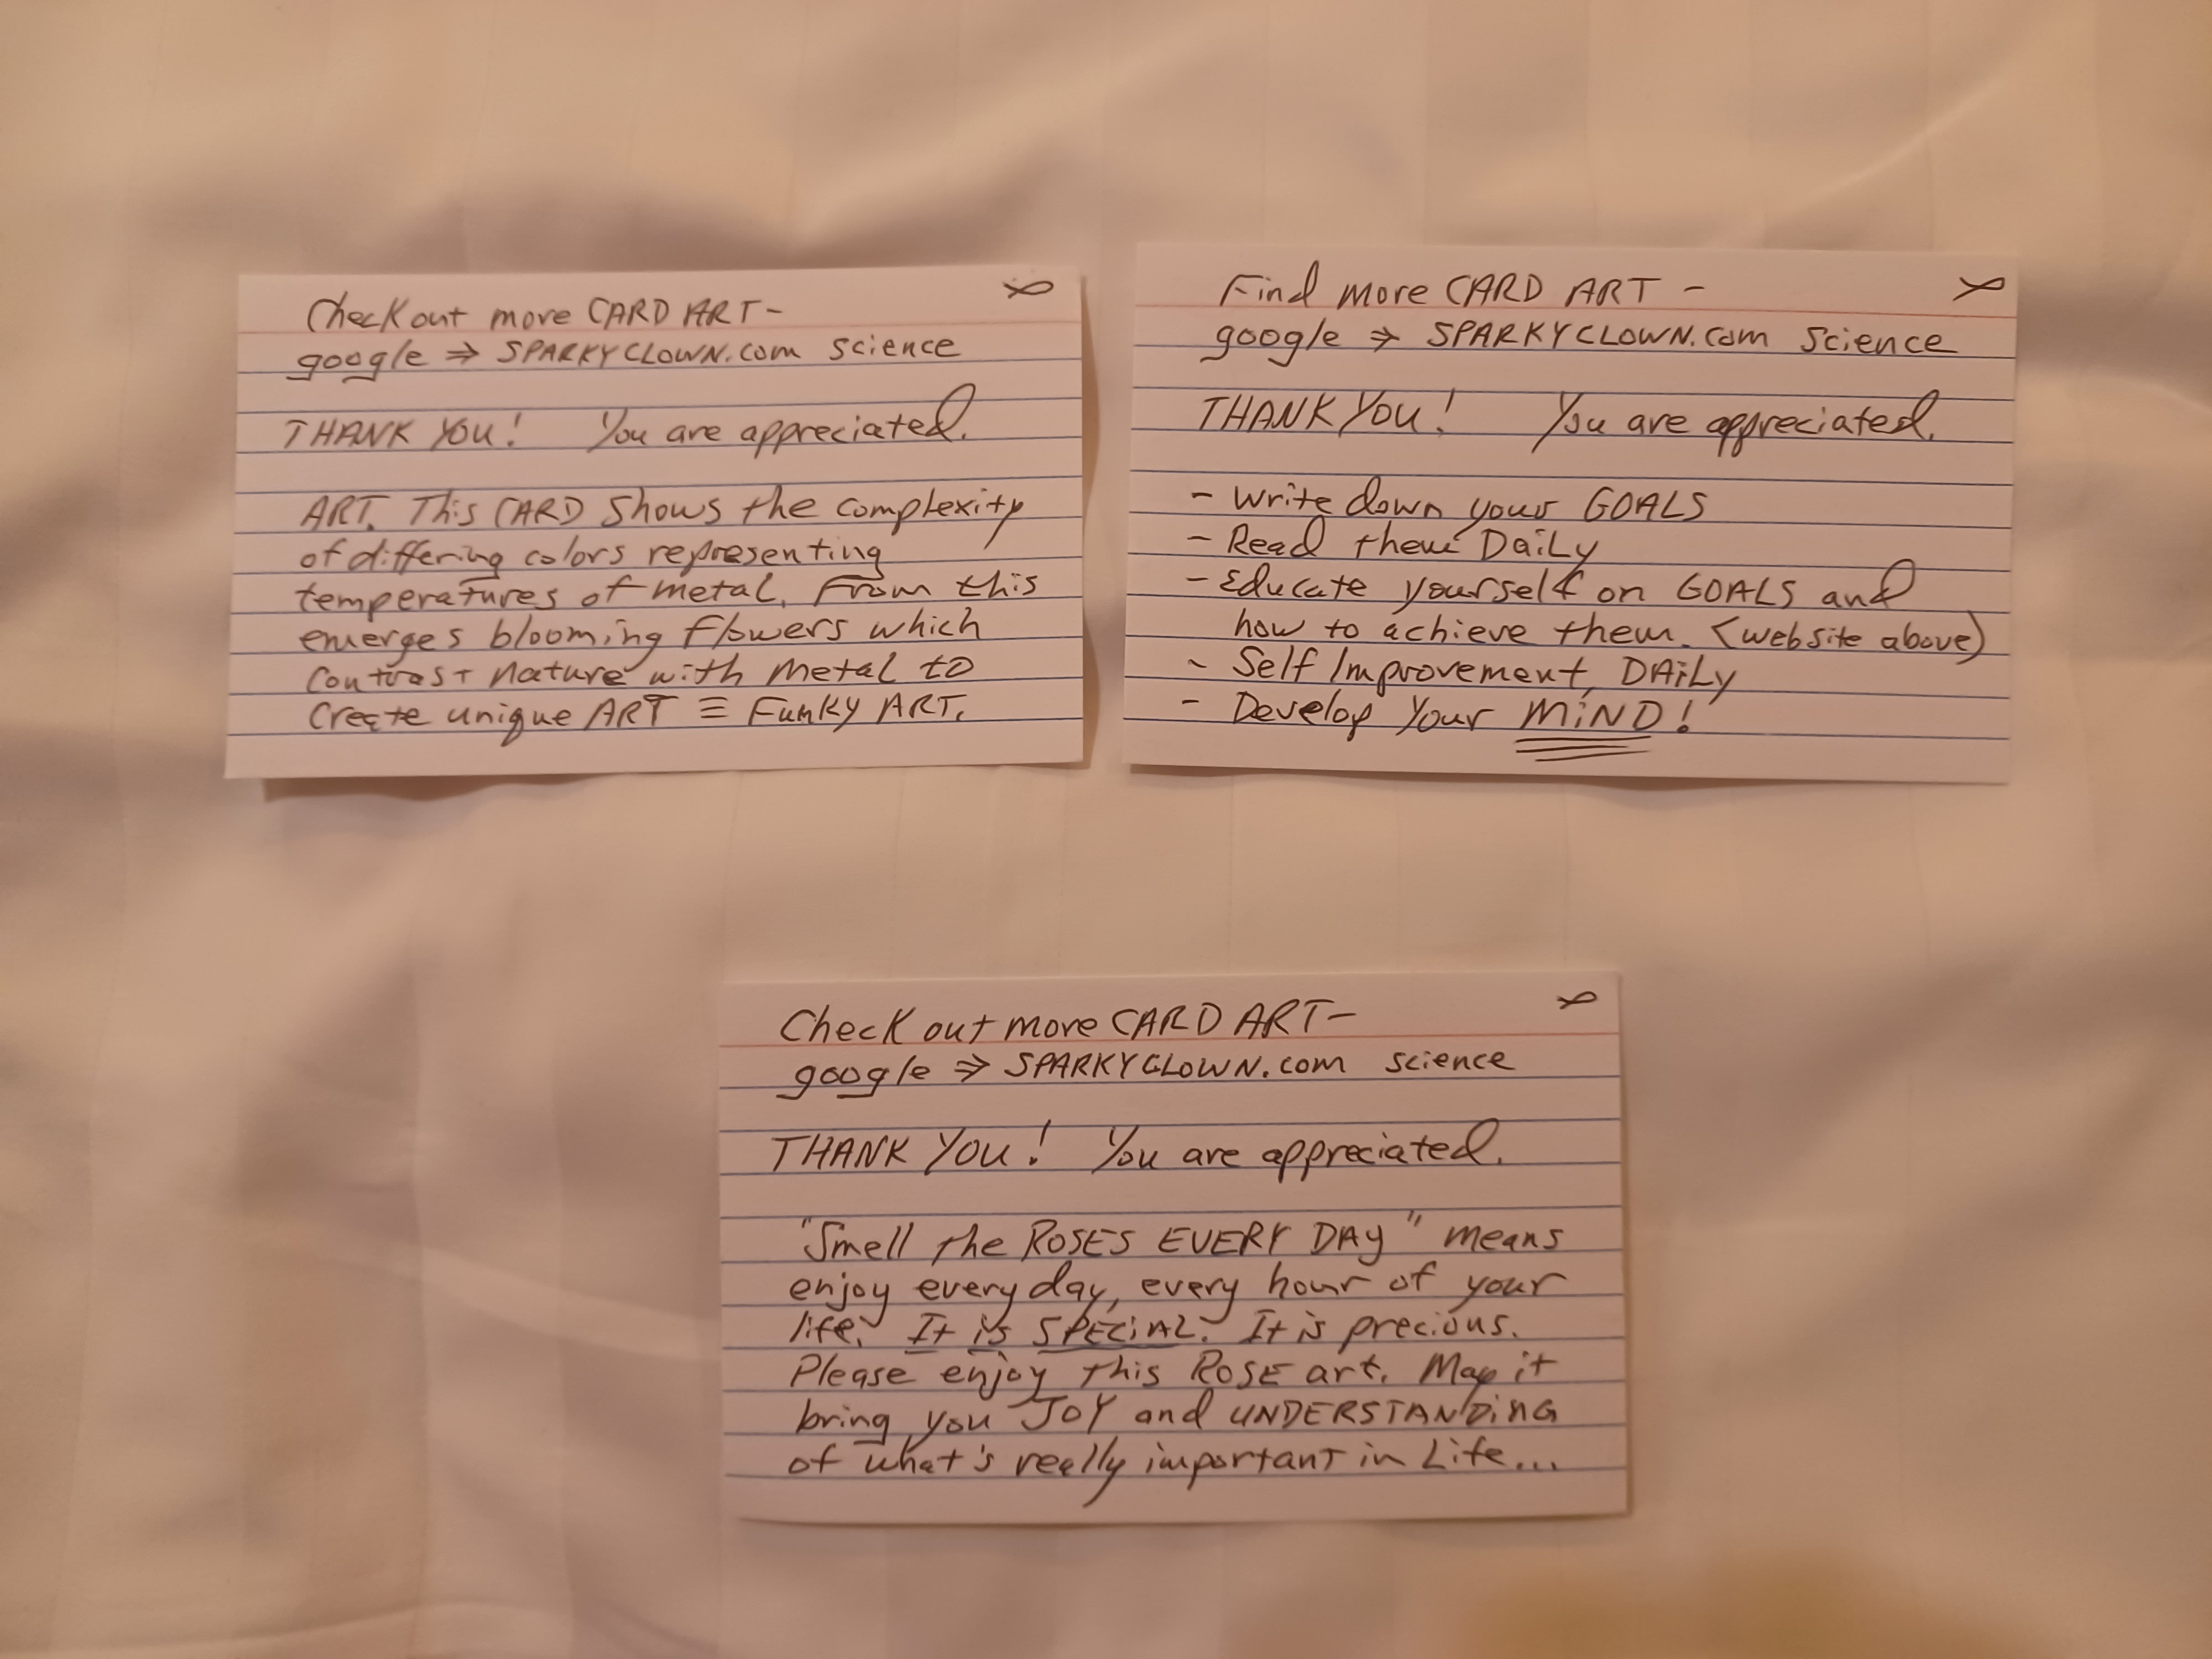 Check out more CARD ART-
google ⇒ SPARKYCLOWN.com science
THANK YOU! You are appreciated.
ART. This CARD Shows the complexity
of differing colors representing
temperatures of metal. From this
emerges blooming flowers which
contrast nature with metal to
create unique ART ≡ FUNKY ART.
Find more CARD ART -
google ⇒ SPARKYCLOWN.com Science
THANK YOU! You are appreciated.
- Write down your GOALS
- Read them DaiLy
- Educate yourself on GOALS and
how to achieve them. (website above)
- Self Improvement, DAiLy
- Develop Your MiND!
Check out more CARD ART-
google ⇒ SPARKYCLOWN.com science
THANK YOU! You are appreciated.
"Smell the ROSES EVERY DAY" means
enjoy every day, every hour of your
life. It is SPECiAL. It is precious.
Please enjoy this ROSE art. May it
bring you JOY and UNDERSTANDiNG
of what's really important in Life...